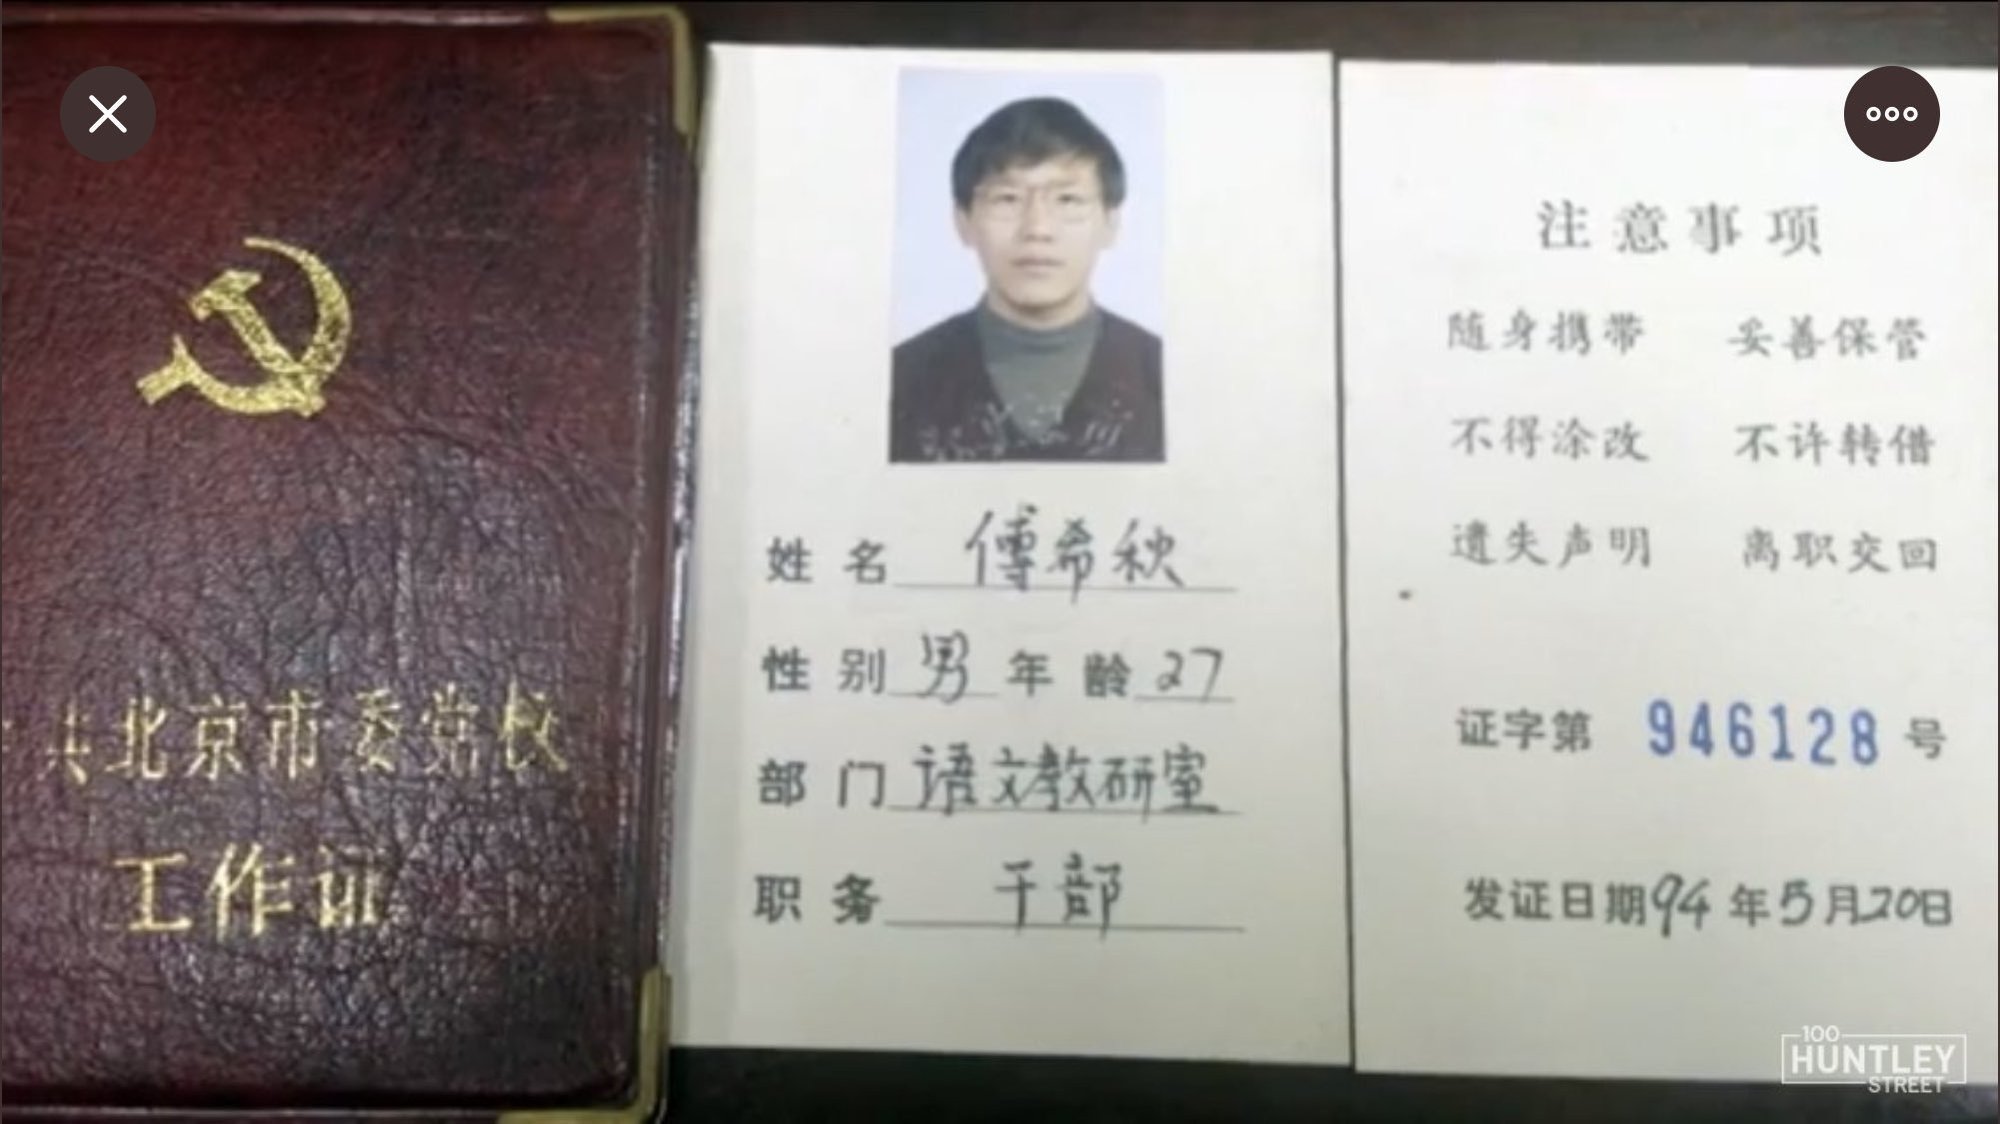 共北京市委党校
工作证
姓 名 傅希秋
性 别 男 年 龄 27
部 门 语文教研室
职 务 干部
注意事项
随身携带 妥善保管
不得涂改 不许转借
遗失声明 离职交回
证字第 946128 号
发证日期94年5月20日
100
HUNTLEY
STREET